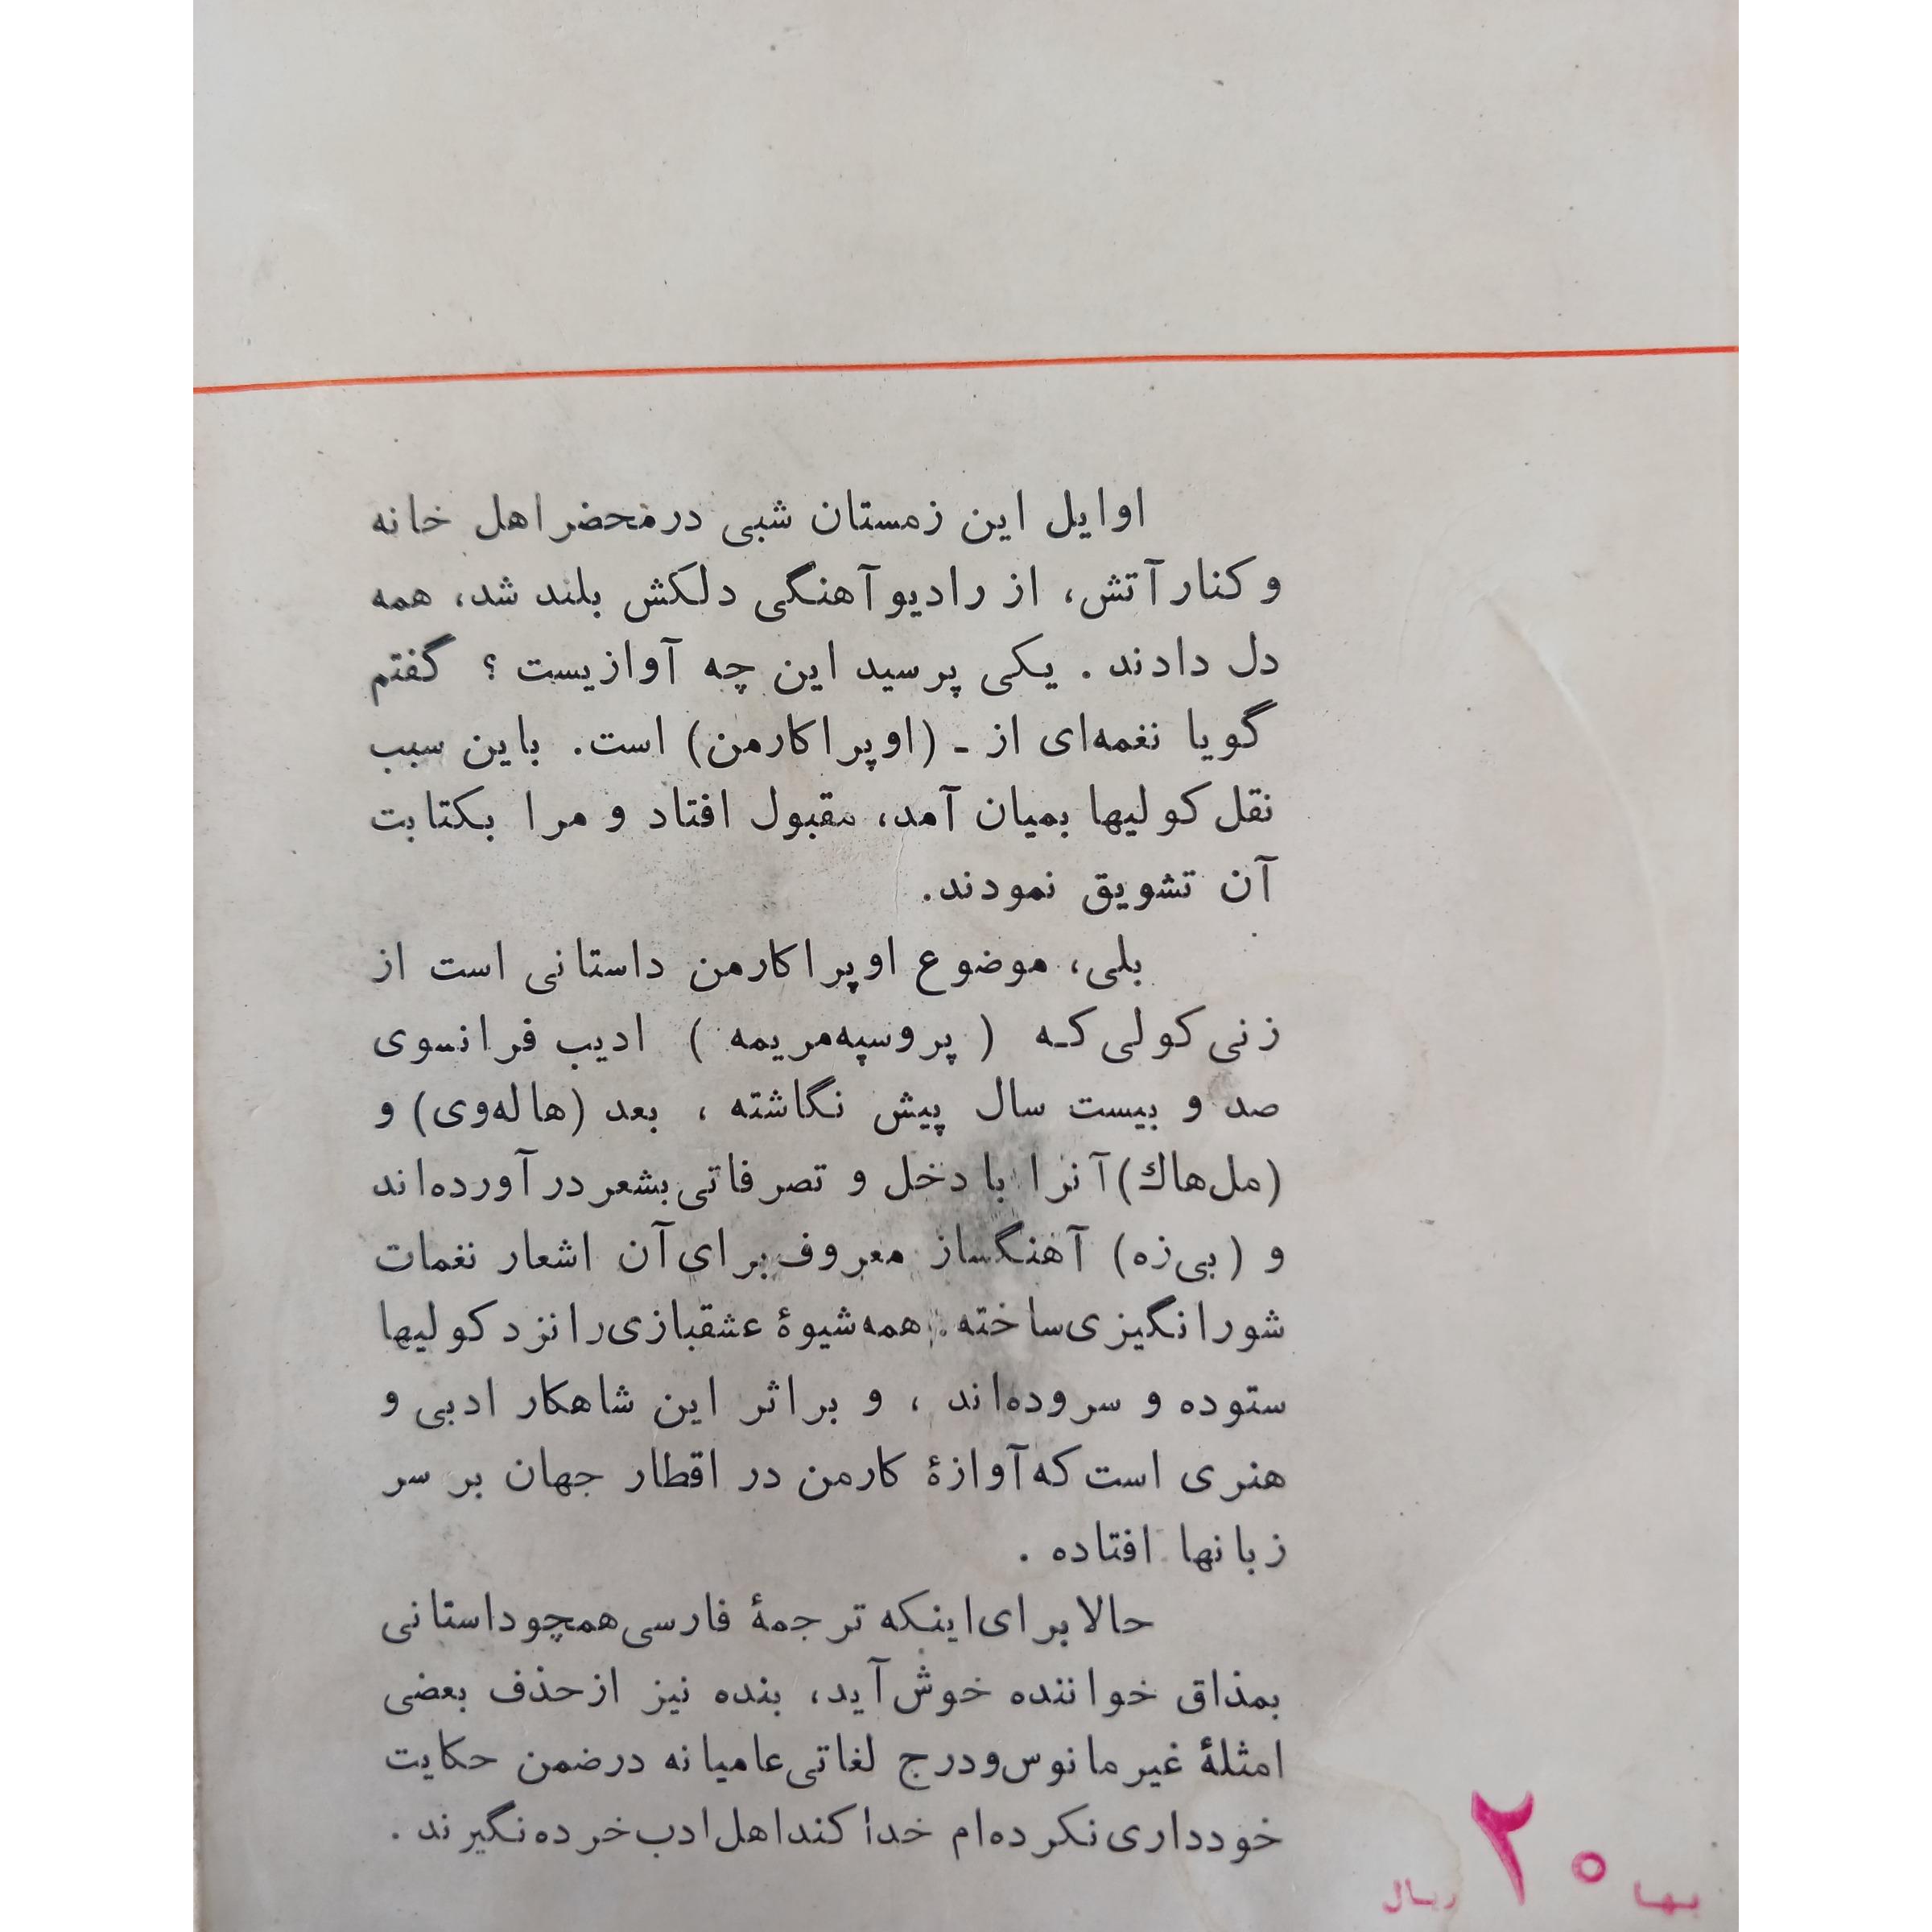 اوایل این زمستان شبی درمحضر اهل خانه
و کنار آتش، از رادیو آهنگی دلکش بلند شد، همه
دل دادند . یکی پرسید این چه آوازیست ؟ گفتم
گویا نغمه‌ای از ـ (اوپرا کارمن) است. باین سبب
نقل کولیها بمیان آمد، مقبول افتاد و مرا بکتابت
آن تشویق نمودند.
بلی، موضوع اوپرا کارمن داستانی است از
زنی کولی که ( پروسپه مریمه ) ادیب فرانسوی
صد و بیست سال پیش نگاشته ، بعد (هاله‌وی) و
(مل‌هاك) آنرا با دخل و تصرفاتی بشعر در آورده‌اند
و (بی‌زه) آهنگساز معروف برای آن اشعار نغمات
شورانگیزی ساخته. همه شیوهٔ عشقبازی را نزد کولیها
ستوده و سروده‌اند ، و براثر این شاهکار ادبی و
هنری است که آوازهٔ کارمن در اقطار جهان بر سر
زبانها افتاده .
حالا برای اینکه ترجمهٔ فارسی همچو داستانی
بمذاق خواننده خوش آید، بنده نیز از حذف بعضی
امثلهٔ غیر مانوس و درج لغاتی عامیانه درضمن حکایت
خودداری نکرده‌ام خدا کند اهل ادب خرده نگیرند .
بها ۲۰ ریال